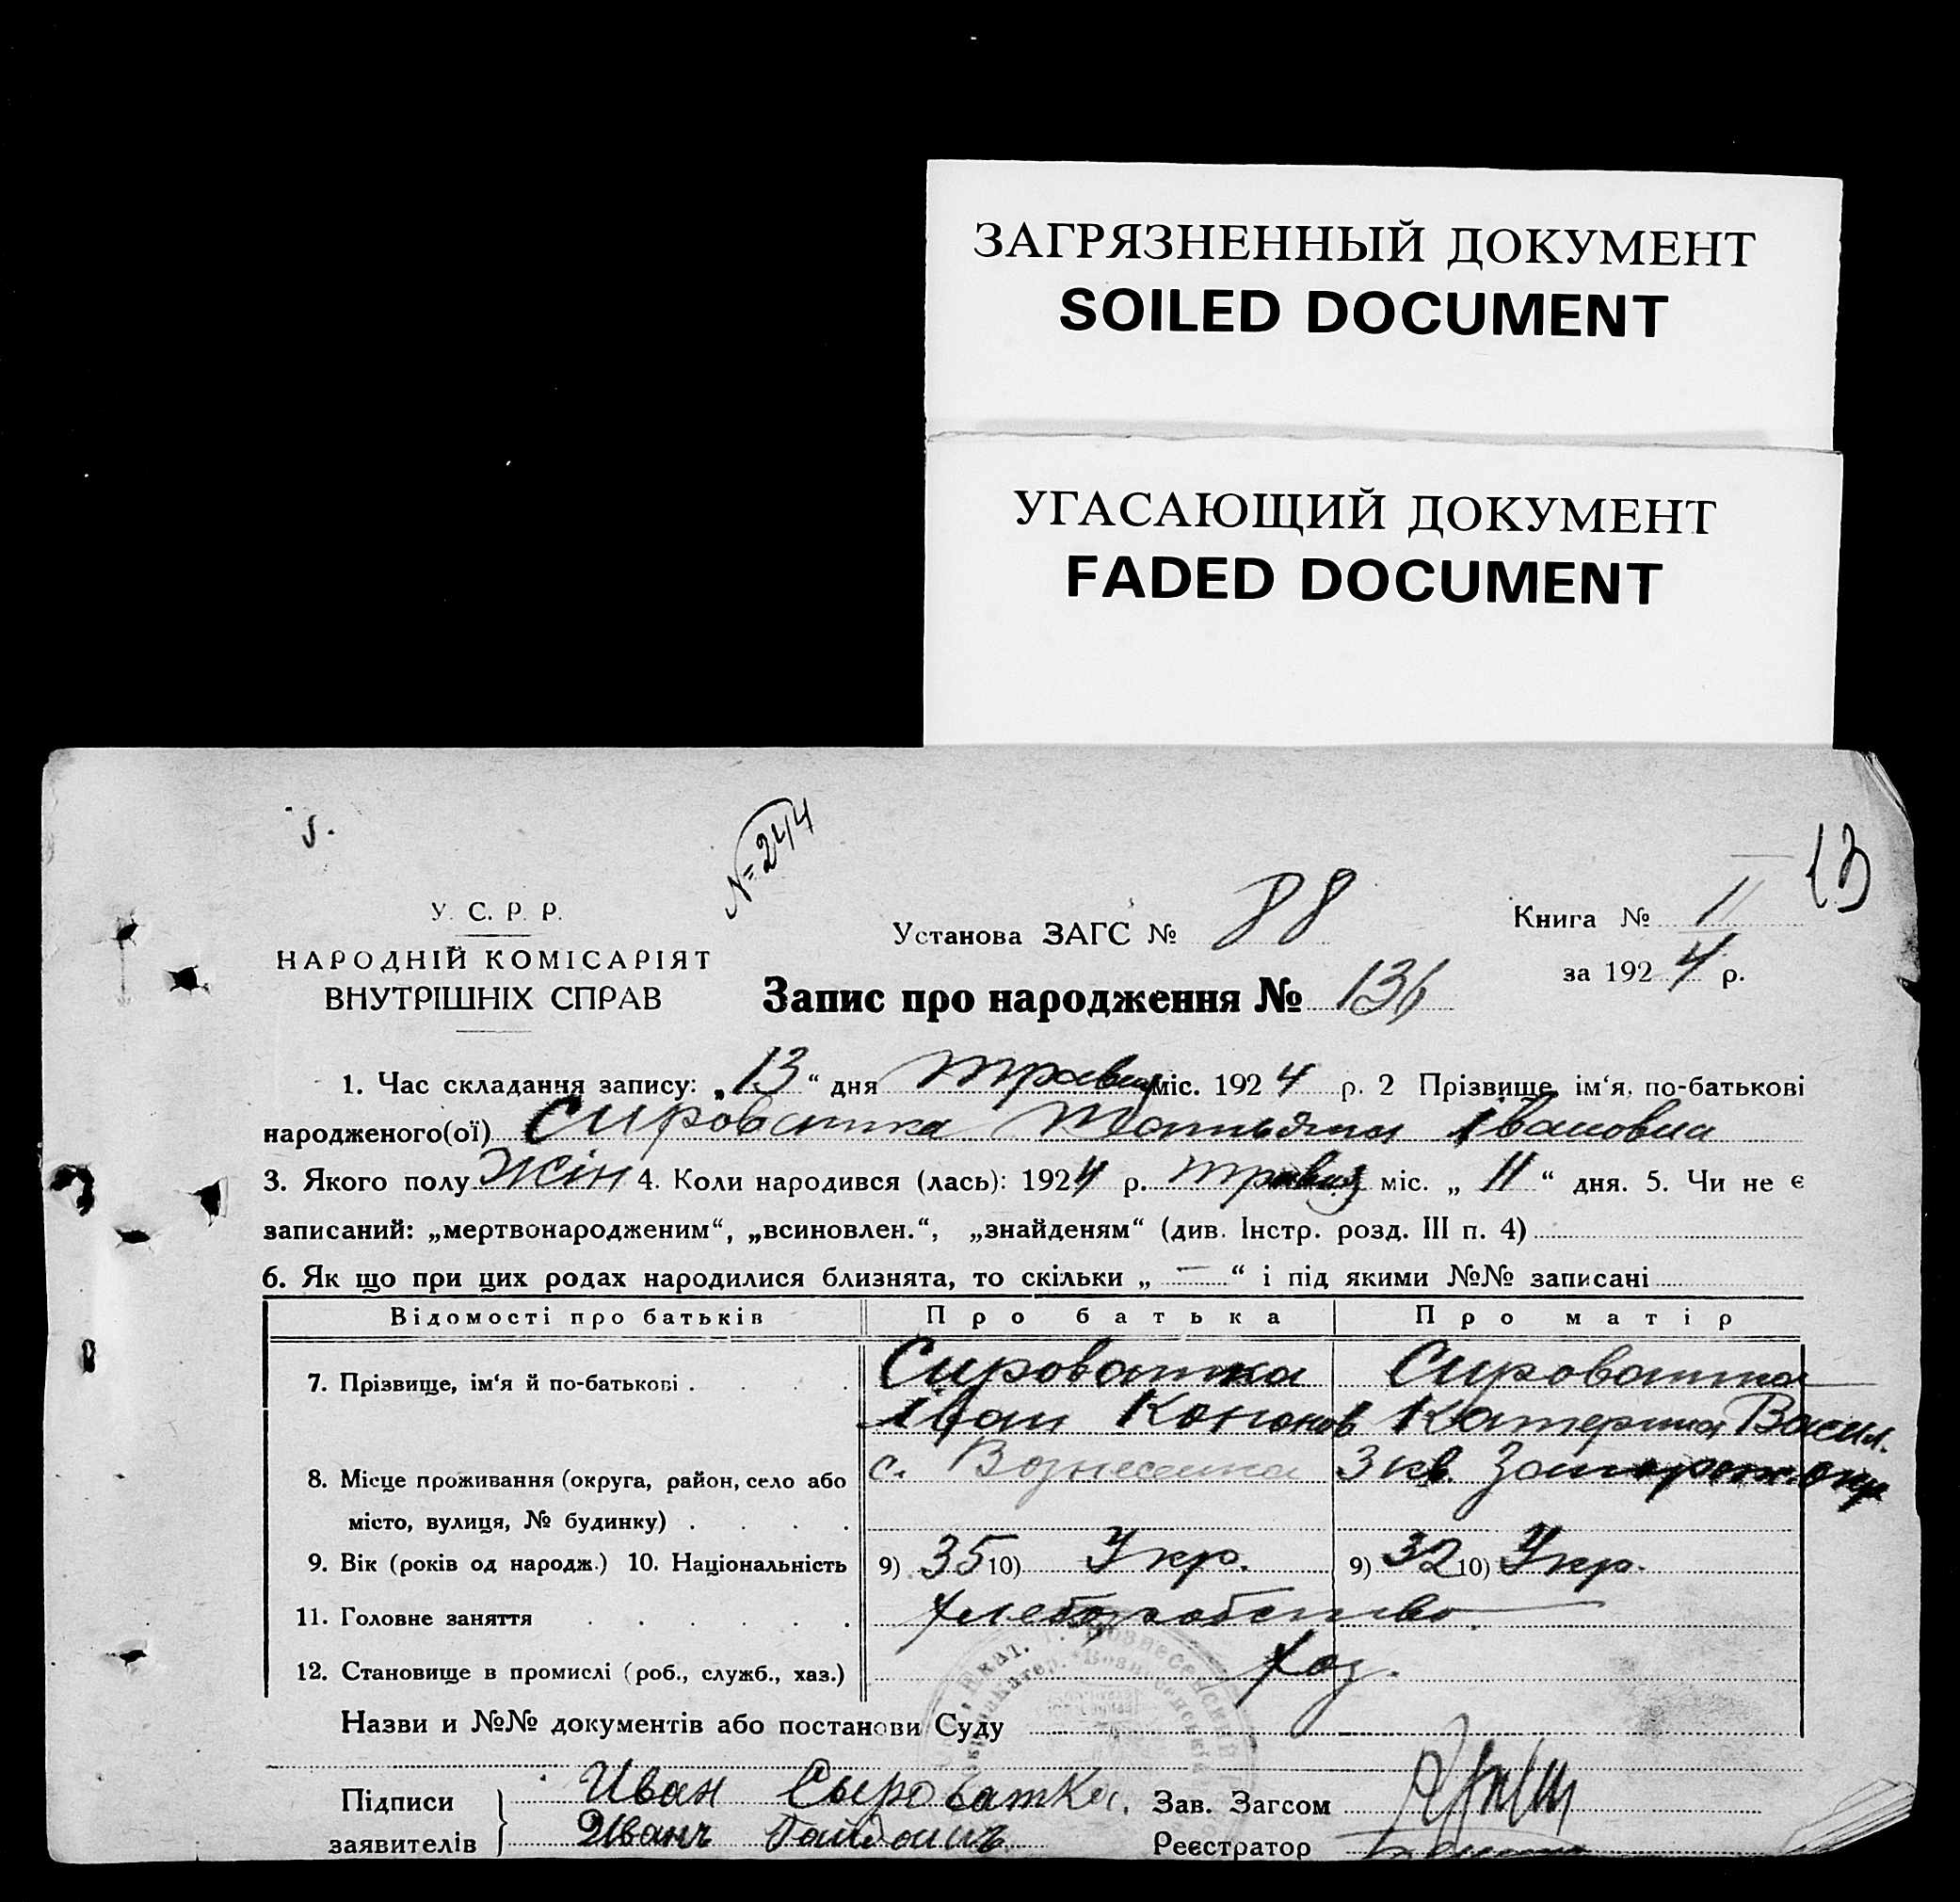 ЗАГРЯЗНЕННЫЙ ДОКУМЕНТ
SOILED DOCUMENT
УГАСАЮЩИЙ ДОКУМЕНТ
FADED DOCUMENT
№ 244
13
У. С. Р. Р.
НАРОДНІЙ КОМІСАРІЯТ
ВНУТРІШНІХ СПРАВ
Установа ЗАГС № 88
Книга № II
за 1924 р.
Запис про народження № 136
1. Час складання запису: „13“ дня травня міс. 1924 р. 2 Прізвище, ім‘я, по-батькові
народженого(ої) Сироватка Татьяна Івановна
3. Якого полу жін 4. Коли народився (лась): 1924 р. травня міс. „11“ дня. 5. Чи не є
записаний: „мертвонародженим“, „всиновлен.“, „знайденям“ (див. Інстр. розд. III п. 4)
6. Як що при цих родах народилися близнята, то скільки „ — “ і під якими №№ записані
Відомості про батьків Про батька Про матір
7. Прізвище, ім‘я й по-батькові Сироватка Сироватка
Іван Кононов Катерина Васил.
8. Місце проживання (округа, район, село або с. Вознесенка 3 кв. Запорож. окр
місто, вулиця, № будинку)
9. Вік (років од народж.) 10. Національність 9) 35 10) Укр. 9) 32 10) Укр.
11. Головне заняття хлеборобство
12. Становище в промислі (роб., служб., хаз.) хоз.
Назви и №№ документів або постанови Суду
Підписи Иван Сыроватка. Зав. Загсом
заявителів Иванъ Реєстратор